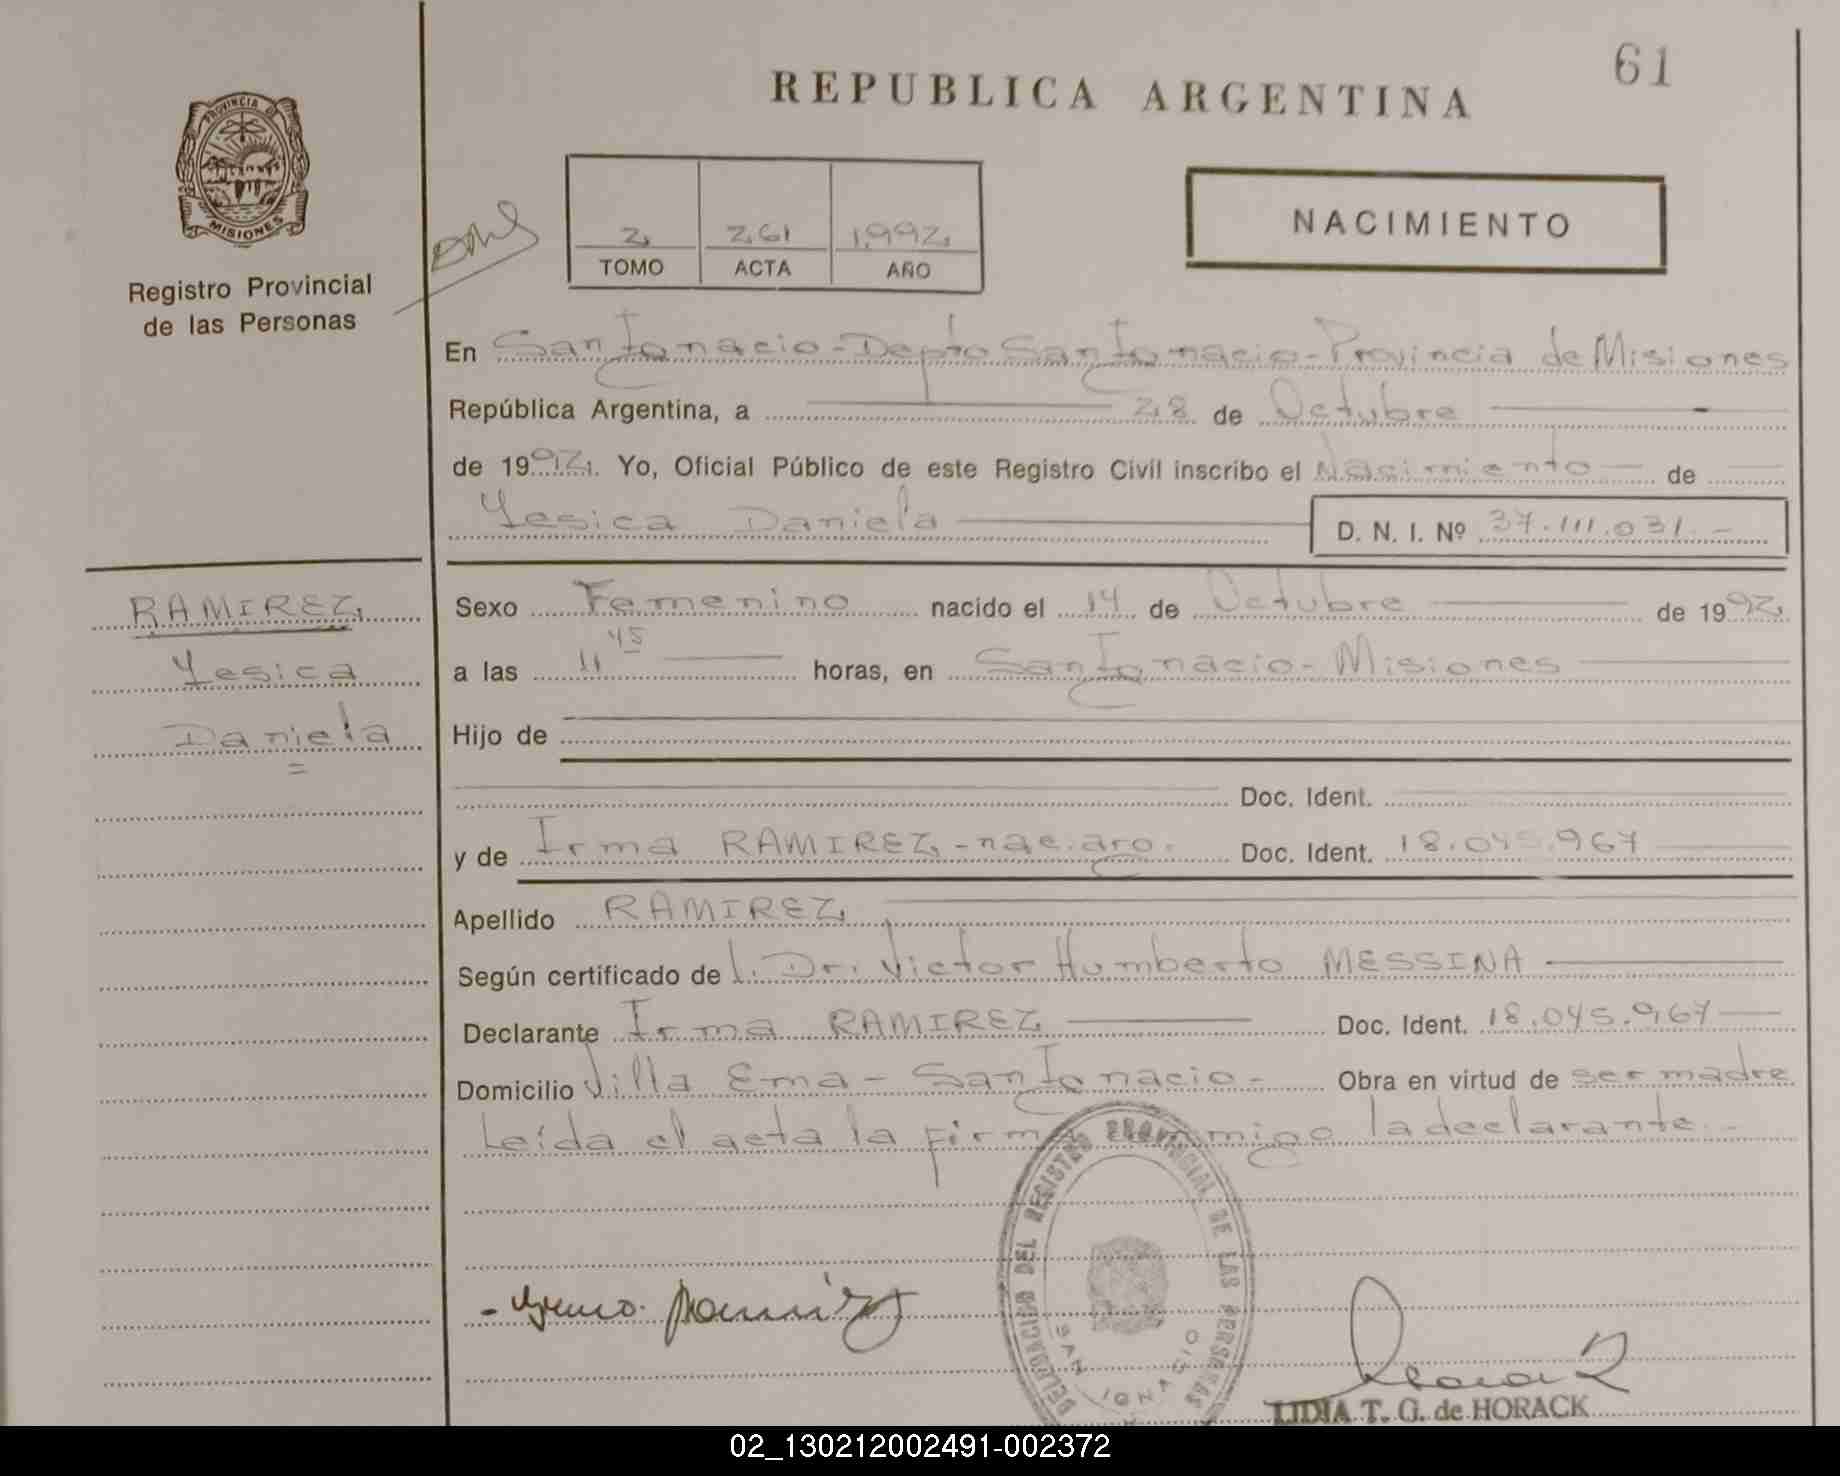 61
REPUBLICA ARGENTINA
PROVINCIA DE
MISIONES
Registro Provincial
de las Personas
2 261 1992
TOMO ACTA AÑO
NACIMIENTO
En San Ignacio - Depto San Ignacio - Provincia de Misiones
República Argentina, a 28 de Octubre
de 1992. Yo, Oficial Público de este Registro Civil inscribo el Nacimiento de
Yesica Daniela D. N. I. Nº 37.111.031.-
RAMIREZ
Yesica
Daniela
Sexo Femenino nacido el 14 de Octubre de 1992
a las 11 45 horas, en San Ignacio - Misiones
Hijo de
Doc. Ident.
y de Irma RAMIREZ - nac. arg. Doc. Ident. 18.045.967
Apellido RAMIREZ
Según certificado de l. Dr. Victor Humberto MESSINA
Declarante Irma RAMIREZ Doc. Ident. 18.045.967
Domicilio Villa Ema - San Ignacio - Obra en virtud de ser madre
Leída el acta la firma conmigo la declarante.-
DELEGACION DEL REGISTRO PROVINCIAL DE LAS PERSONAS
SAN IGNACIO
LIDIA T. G. de HORACK
02_130212002491-002372